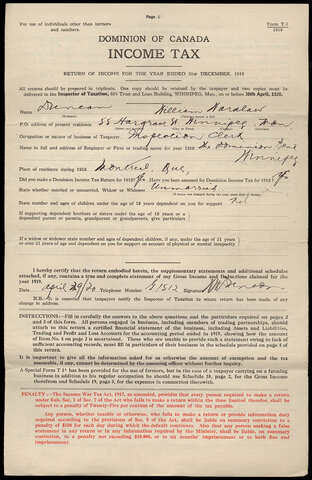 Page 1
For use of individuals other than farmers and ranchers.
Form T-1
1919
DOMINION OF CANADA
INCOME TAX
RETURN OF INCOME FOR THE YEAR ENDED 31st DECEMBER, 1919
All returns should be prepared in triplicate. One copy should be retained by the taxpayer and two copies must be
delivered to the Inspector of Taxation, 604 Trust and Loan Building, WINNIPEG, Man., on or before 30th April, 1920.
Name Duncan William Wardlaw
P.O. address of present residence 55 Hargrave St Winnipeg Man
Occupation or nature of business of Taxpayer Inspection Clerk
Name in full and address of Employer or Firm or trading name for year 1919 The Dominion Bank
Winnipeg
Place of residence during 1918 Montreal, Que,
Did you make a Dominion Income Tax Return for 1918? Have you been assessed for Dominion Income Tax for 1918?
State whether married or unmarried, Widow or Widower Unmarried
State number and ages of children under the age of 18 years dependent on you for support nil
If supporting dependent brothers or sisters under the age of 18 years or a
dependent parent or parents, grandparent or grandparents, give particulars
If a widow or widower state number and ages of dependent children if any, under the age of 21 years
or over 21 years of age and dependent on you for support on account of physical or mental incapacity
I hereby certify that the return embodied herein, the supplementary statements and additional schedules
attached, if any, contains a true and complete statement of my Gross Income and Deductions claimed for the
year 1919.
Date April 29/20 Telephone Number Signature
N.B.—It is essential that taxpayers notify the Inspector of Taxation to whom return has been made, of any
change in address.
INSTRUCTIONS:—Fill in carefully the answers to the above questions and the particulars required on pages 2
and 3 of this form. All persons engaged in business, including members of trading partnerships, should
attach to this return a certified financial statement of the business, including Assets and Liabilities,
Trading and Profit and Loss Accounts for the accounting period ended in 1919, showing how the amount
of Item No. 4 on page 2 is ascertained. Those who are unable to provide such a statement owing to lack of
sufficient accounting records, must fill in particulars of their business in the schedule provided on page 4 of
this form.
It is important to give all the information asked for as otherwise the amount of exemption or the tax
assessable, if any, cannot be determined by the assessing officer without further inquiry.
A Special Form T 1A has been provided for the use of farmers, but in the case of a taxpayer carrying on a farming
business in addition to his regular occupation he should use Schedule 10, page 2, for the Gross Income
therefrom and Schedule 19, page 3, for the expenses in connection therewith.
PENALTY:—The Income War Tax Act, 1917, as amended, provides that every person required to make a return
under Sub. Sec. 1 of Sec. 7 of the Act who fails to make a return within the time limited therefor, shall be
subject to a penalty of Twenty-five per centum of the amount of the tax payable.
Any person, whether taxable or otherwise, who fails to make a return or provide information duly
required according to the provisions of Sec. 8 of the Act, shall be liable on summary conviction to a
penalty of $100 for each day during which the default continues. Also that any person making a false
statement in any return or in any information required by the Minister, shall be liable, on summary
conviction, to a penalty not exceeding $10,000, or to six months imprisonment or to both fine and
imprisonment.